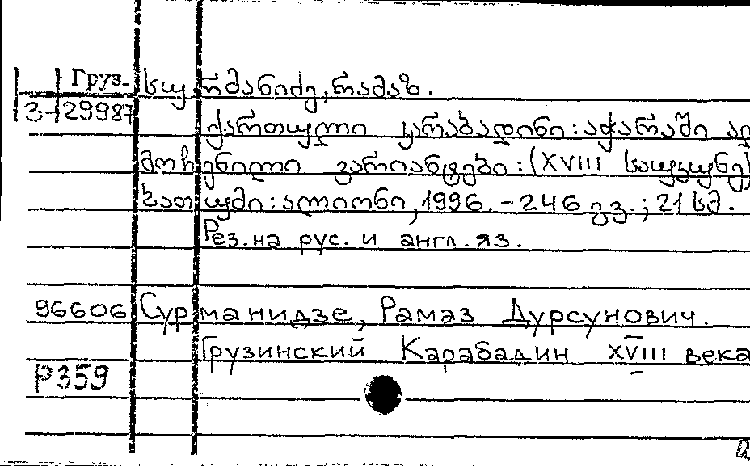 Груз. სურმანიძე, რამაზ.
3-129987 ქართული კარაბადინი: აჭარაში აღ
მოჩენილი ვარიანტები: (XVIII საუკუნე)
ბათუმი: ალიონი, 1996. - 246 გვ.; 21 სმ.
Рез. на рус. и англ. яз.
96606 Сурманидзе, Рамаз Дурсунович.
Грузинский Карабадин XVIII века
Р359